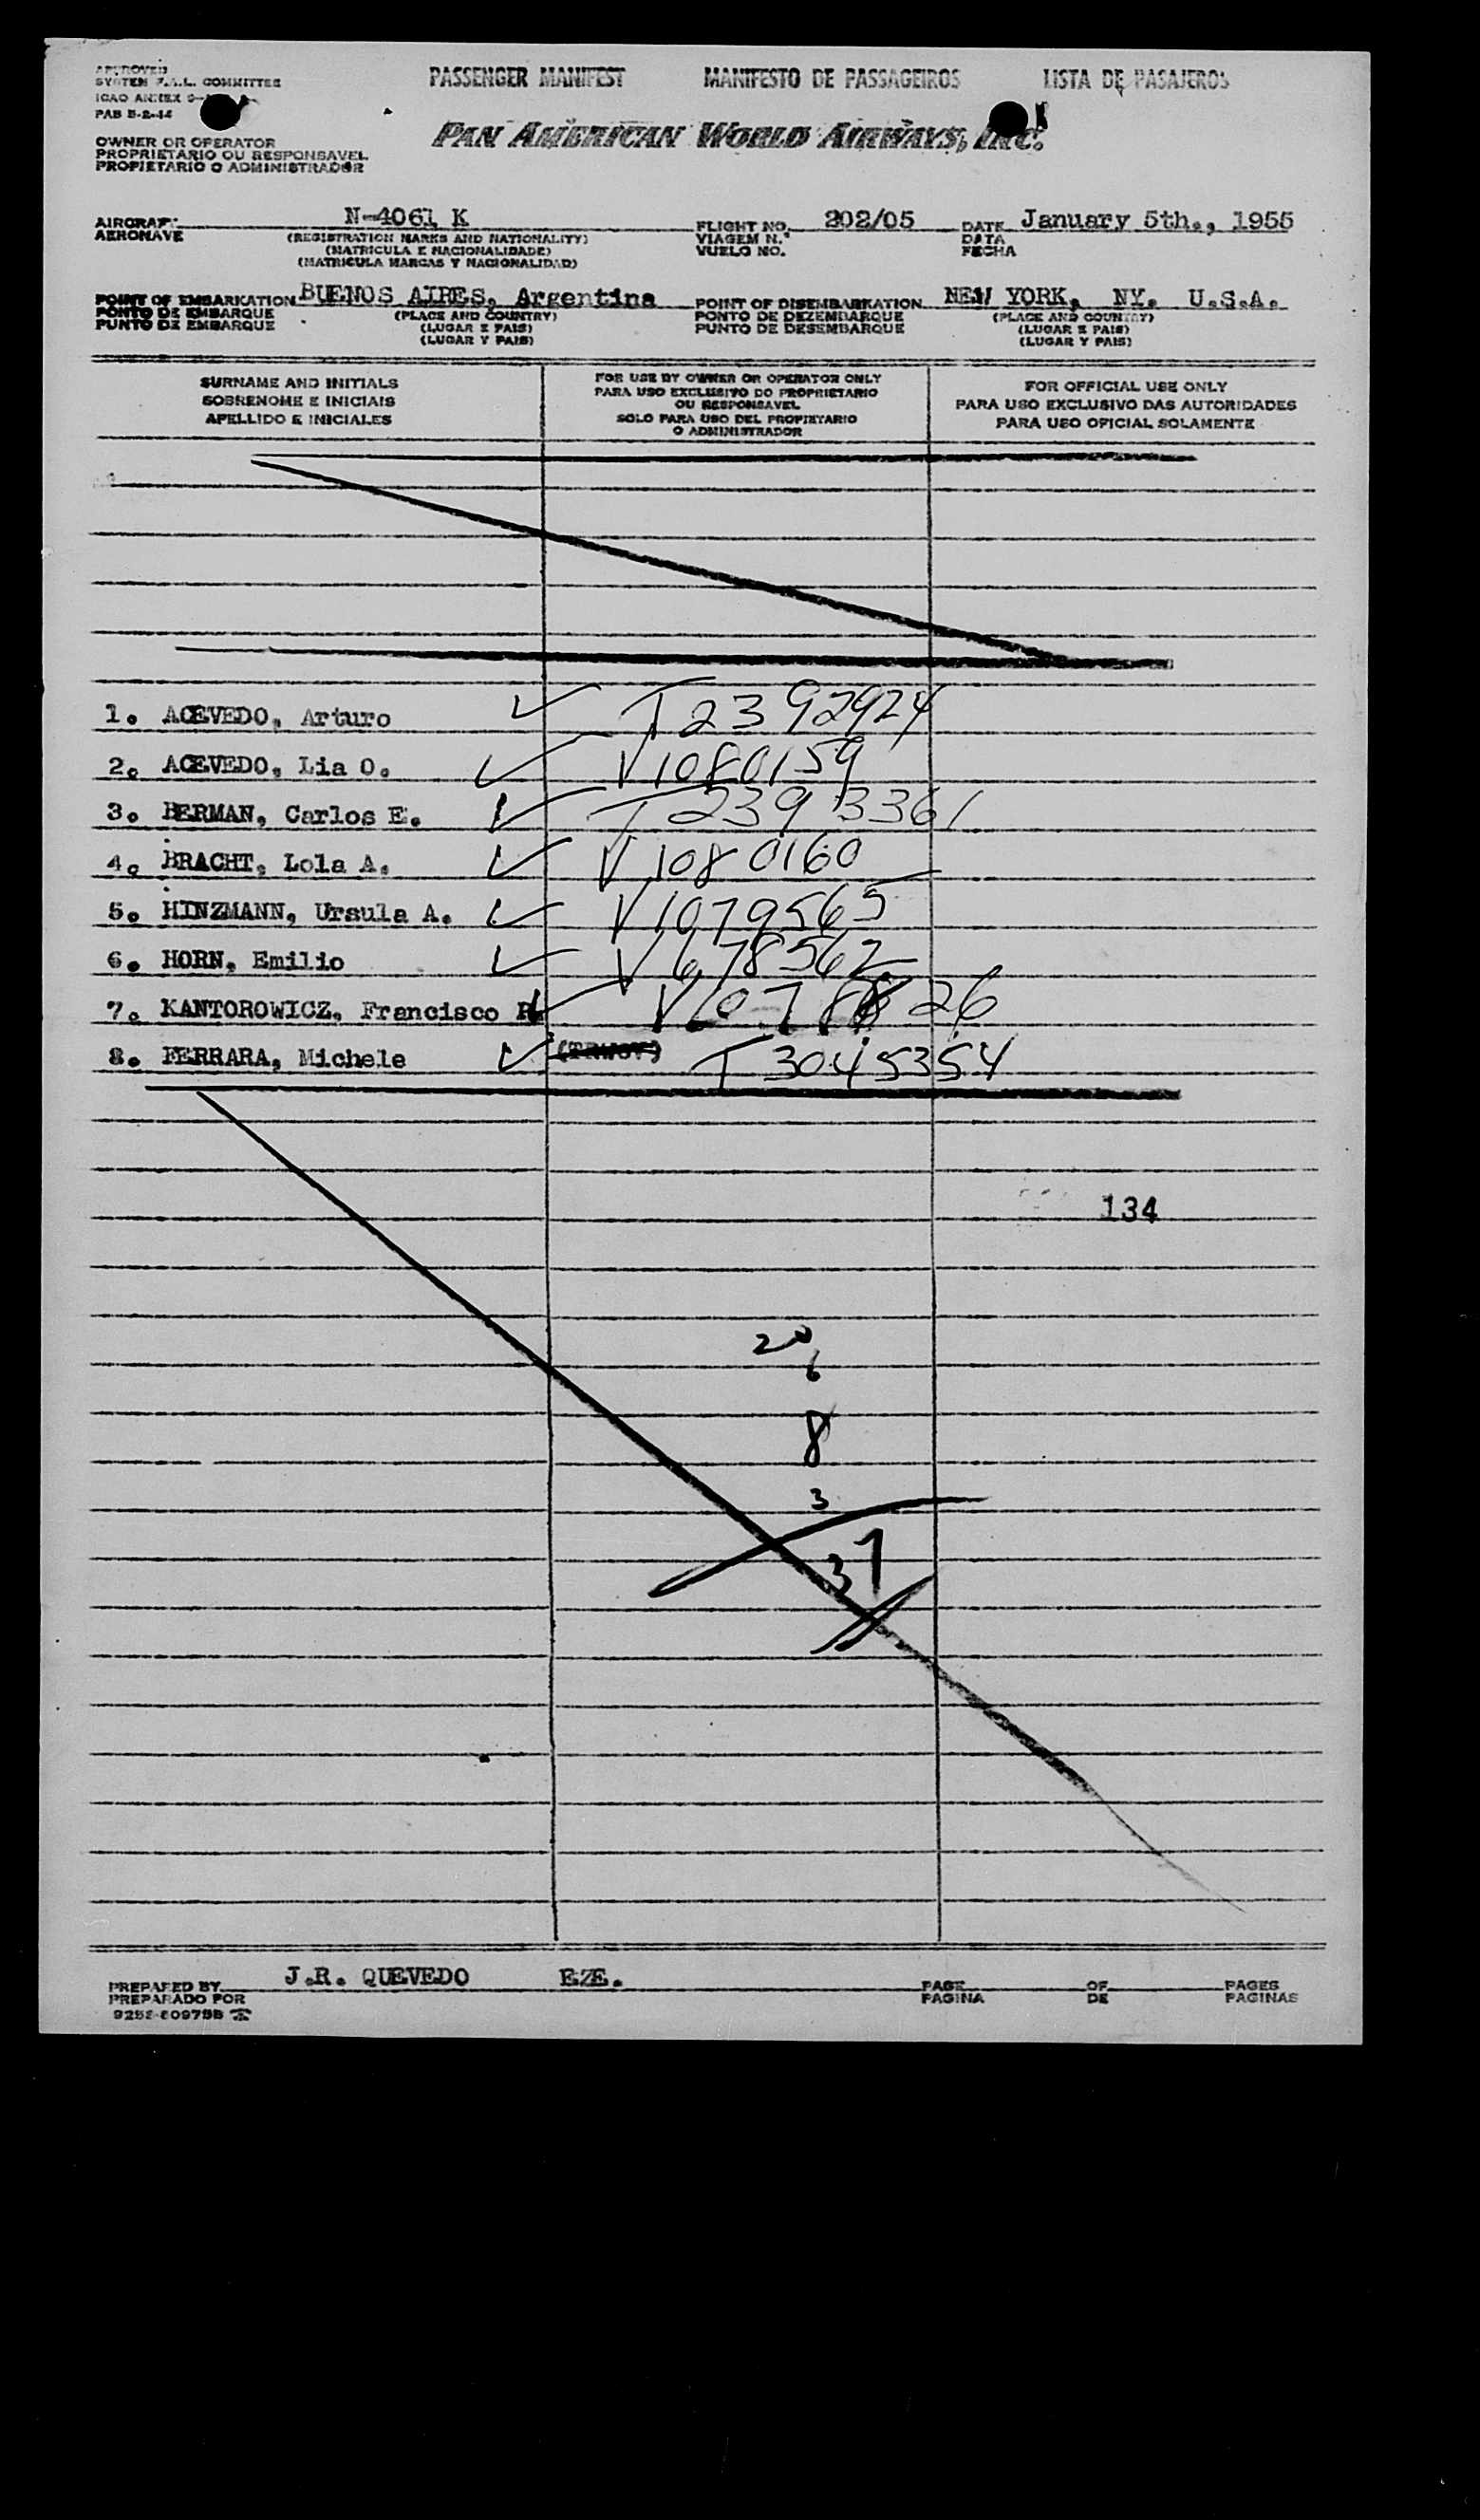 APPROVED PASSENGER MANIFEST MANIFESTO DE PASSAGEIROS LISTA DE PASAJEROS
SYSTEM F.A.L. COMMITTEE
ICAO ANNEX 9-
PAB B-2-44
PAN AMERICAN WORLD AIRWAYS, INC.
OWNER OR OPERATOR
PROPRIETARIO OU RESPONSAVEL
PROPIETARIO O ADMINISTRADOR
AIRCRAFT N-4061 K FLIGHT NO. 202/05 DATE January 5th., 1955
AERONAVE (REGISTRATION MARKS AND NATIONALITY) VIAGEM N.º DATA
(MATRICULA E NACIONALIDADE) VUELO NO. FECHA
(MATRICULA MARCAS Y NACIONALIDAD)
POINT OF EMBARKATION BUENOS AIRES, Argentina POINT OF DISEMBARKATION NEW YORK, NY. U.S.A.
PONTO DE EMBARQUE (PLACE AND COUNTRY) PONTO DE DEZEMBARQUE (PLACE AND COUNTRY)
PUNTO DE EMBARQUE (LUGAR E PAIS) PUNTO DE DESEMBARQUE (LUGAR E PAIS)
(LUGAR Y PAIS) (LUGAR Y PAIS)
SURNAME AND INITIALS
SOBRENOME E INICIAIS
APELLIDO E INICIALES
FOR USE BY OWNER OR OPERATOR ONLY
PARA USO EXCLUSIVO DO PROPRIETARIO
OU RESPONSAVEL
SOLO PARA USO DEL PROPIETARIO
O ADMINISTRADOR
FOR OFFICIAL USE ONLY
PARA USO EXCLUSIVO DAS AUTORIDADES
PARA USO OFICIAL SOLAMENTE
1. ACEVEDO, Arturo T 2392924
2. ACEVEDO, Lia O. V 1080159
3. BERMAN, Carlos E. T 2393361
4. BRACHT, Lola A. V 1080160
5. HINZMANN, Ursula A. V 1079565
6. HORN, Emilio V 678562
7. KANTOROWICZ, Francisco
8. FERRARA, Michele T 3045354
134
20
6
8
3
37
PREPARED BY J.R. QUEVEDO EZE. PAGE OF PAGES
PREPARADO POR PAGINA DE PAGINAS